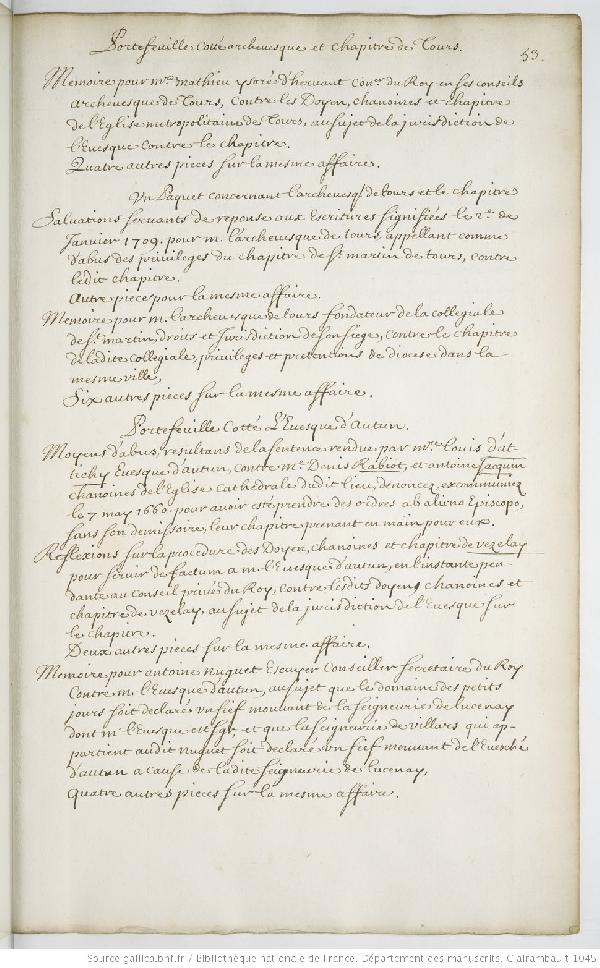 Portefeuille cotté archevesque et chapitre de Tours.
53.
Memoire pour mre mathieu ysoré d'hervaut conser du Roy en ses conseils
archevesque de Tours, Contre les Doyen, chanoines et chapitre
de l'Eglise metropolitaine de Tours, au sujet de la jurisdiction de
l'Evesque contre le chapitre.
Quatre autres pieces sur la mesme affaire.
Un Paquet concernant l'archevesq de tours et le chapitre
Salvations servants de reponse aux Escritures signifiées le 2e de
Janvier 1709. pour m. l'archevesque de tours appellant comme
d'abus des privileges du chapitre de St martin de tours, contre
ledit chapitre.
Autre piece pour la mesme affaire.
Memoire pour m. l'archevesque de tours fondateur de la collegiale
de St martin, droits et Jurisdiction de son siege, contre le chapitre
de ladite collegiale, privileges et pretentions de diocese dans la
mesme ville,
Six autres pieces sur la mesme affaire.
Portefeuille Cotté L'Evesque d'Autun.
Moyens d'abus, resultans de la sentence rendue par mre Louis d'at-
tichy Evesque d'autun, contre me Denis Rabiot, et antoine Jacquin
chanoines de l'Eglise cathedrale dudit lieu, denoncez, excommuniez
le 7 may 1660. pour avoir esté prendre des ordres ab alieno Episcopo,
sans son demissoire, leur chapitre prenant en main pour eux.
Reflexions sur la procedure des Doyen, chanoines et chapitre de vezelay
pour servir de factum a m. l'Evesque d'autun, en l'instante pen-
dante au Conseil privé du Roy, contre lesdits doyens chanoines et
chapitre de vezelay, au sujet de la jurisdiction de l'Evesque sur
le chapitre.
Deux autres pieces sur la mesme affaire.
Memoire pour antoine nuguet Escuyer Conseiller secretaire du Roy
Contre m. l'Evesque d'autun, au sujet que le domaine des petits
jours soit declaré un fief mouvant de la seigneurie de lucenay
dont mr l'Evesque est sgr, et que la seigneurie de villars qui ap-
partient audit nuguet soit declaré un fief mouvant de l'Evesché
d'autun a cause de ladite seigneurie de lucenay,
Quatre autres pieces sur la mesme affaire.
Source gallica.bnf.fr / Bibliothèque nationale de France. Département des manuscrits. Clairambault 1045